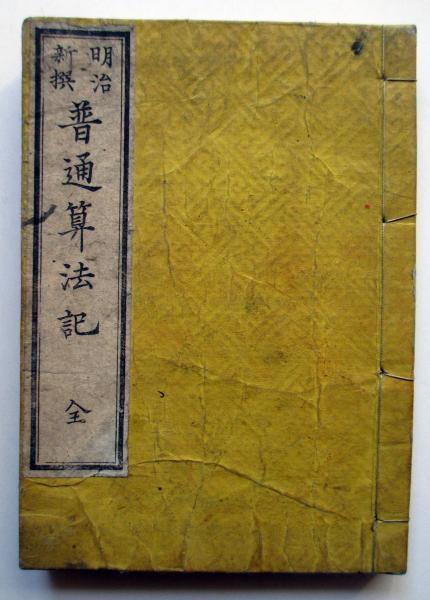 明治
新撰
普通算法記 全